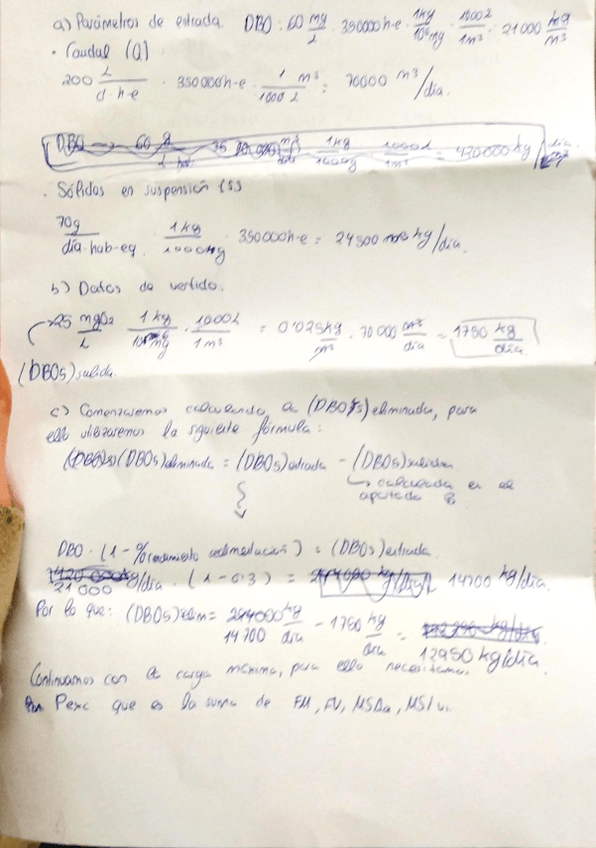 a) Parámetros de entrada. DBO: 60 mg/L · 350000h-e · 1kg/10⁶mg · 1000L/1m³ : 21000 kg/m³
· Caudal (Q)
200 L/d h-e · 350000h-e · 1 m³/1000 L = 70000 m³/día.
DBO → 60 g 1kg/1000g 1000L/1m³ = 420000 kg
· Sólidos en suspensión (S)
70g/día·hab-eq. · 1kg/1000g · 350000h-e = 24500 kg/día.
b) Datos de vertido.
25 mgO₂/L · 1 kg/10⁶mg · 1000L/1m³ = 0'025kg/m³ · 70 000 m³/día = 1750 kg/día.
(DBO₅)salida.
c) Comenzaremos calculando la (DBO₅)eliminada, para
ello utilizaremos la siguiente fórmula:
(DBO₅)eliminada = (DBO₅)entrada - (DBO₅)salida
→ calculada en el
apartado B
DBO · (1 - % rendimiento sedimentación) = (DBO₅)entrada.
21000 kg/día · (1-0'3) = 14700 kg/día.
Por lo que: (DBO₅)elim = 14700 kg/día - 1750 kg/día = 12950 kg/día.
Continuamos con la carga máxima, para ello necesitamos
Pexc que es la suma de FM, FV, MSDa,